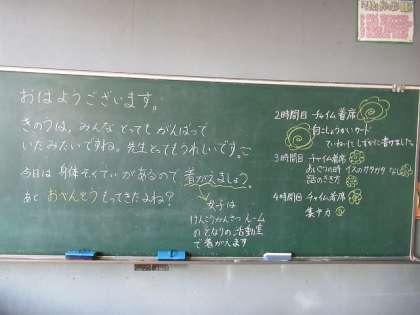 おはようございます。
きのうは、みんなとってもがんばって
いたみたいですね。先生とてもうれしいです。
今日は身体そくていがあるので着がえましょう。
あと おべんとうもってきたよね?
女子は
けんこうかんさつルーム
のとなりの活動室
で着がえます
2時間目 チャイム着席
自こしょうかいカード
ていねいにしずかに書けました。
3時間目 チャイム着席
あいさつの時 イスのガタガタなし
話のきき方
4時間目 チャイム着席
集中力